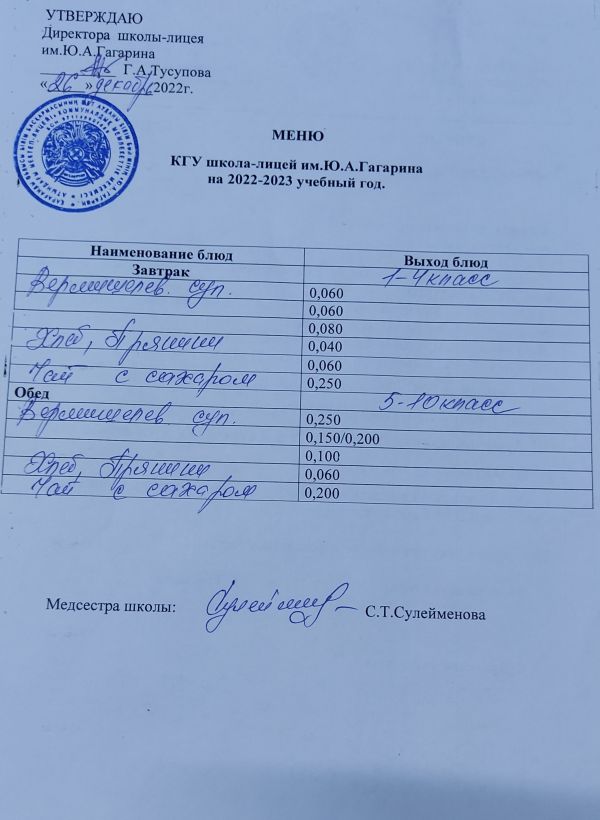 УТВЕРЖДАЮ
Директора школы-лицея
им.Ю.А.Гагарина
Г.А.Тусупова
«26 » декабрь 2022г.
МЕНЮ
КГУ школа-лицей им.Ю.А.Гагарина
на 2022-2023 учебный год.
Наименование блюд Выход блюд
Завтрак 1-4 класс
Вермишелев. суп. 0,060
0,060
0,080
Хлеб, Пряники 0,040
0,060
Чай с сахаром 0,250
Обед 5-10 класс
Вермишелев. суп. 0,250
0,150/0,200
0,100
Хлеб, Пряники 0,060
Чай с сахаром 0,200
Медсестра школы: С.Т.Сулейменова